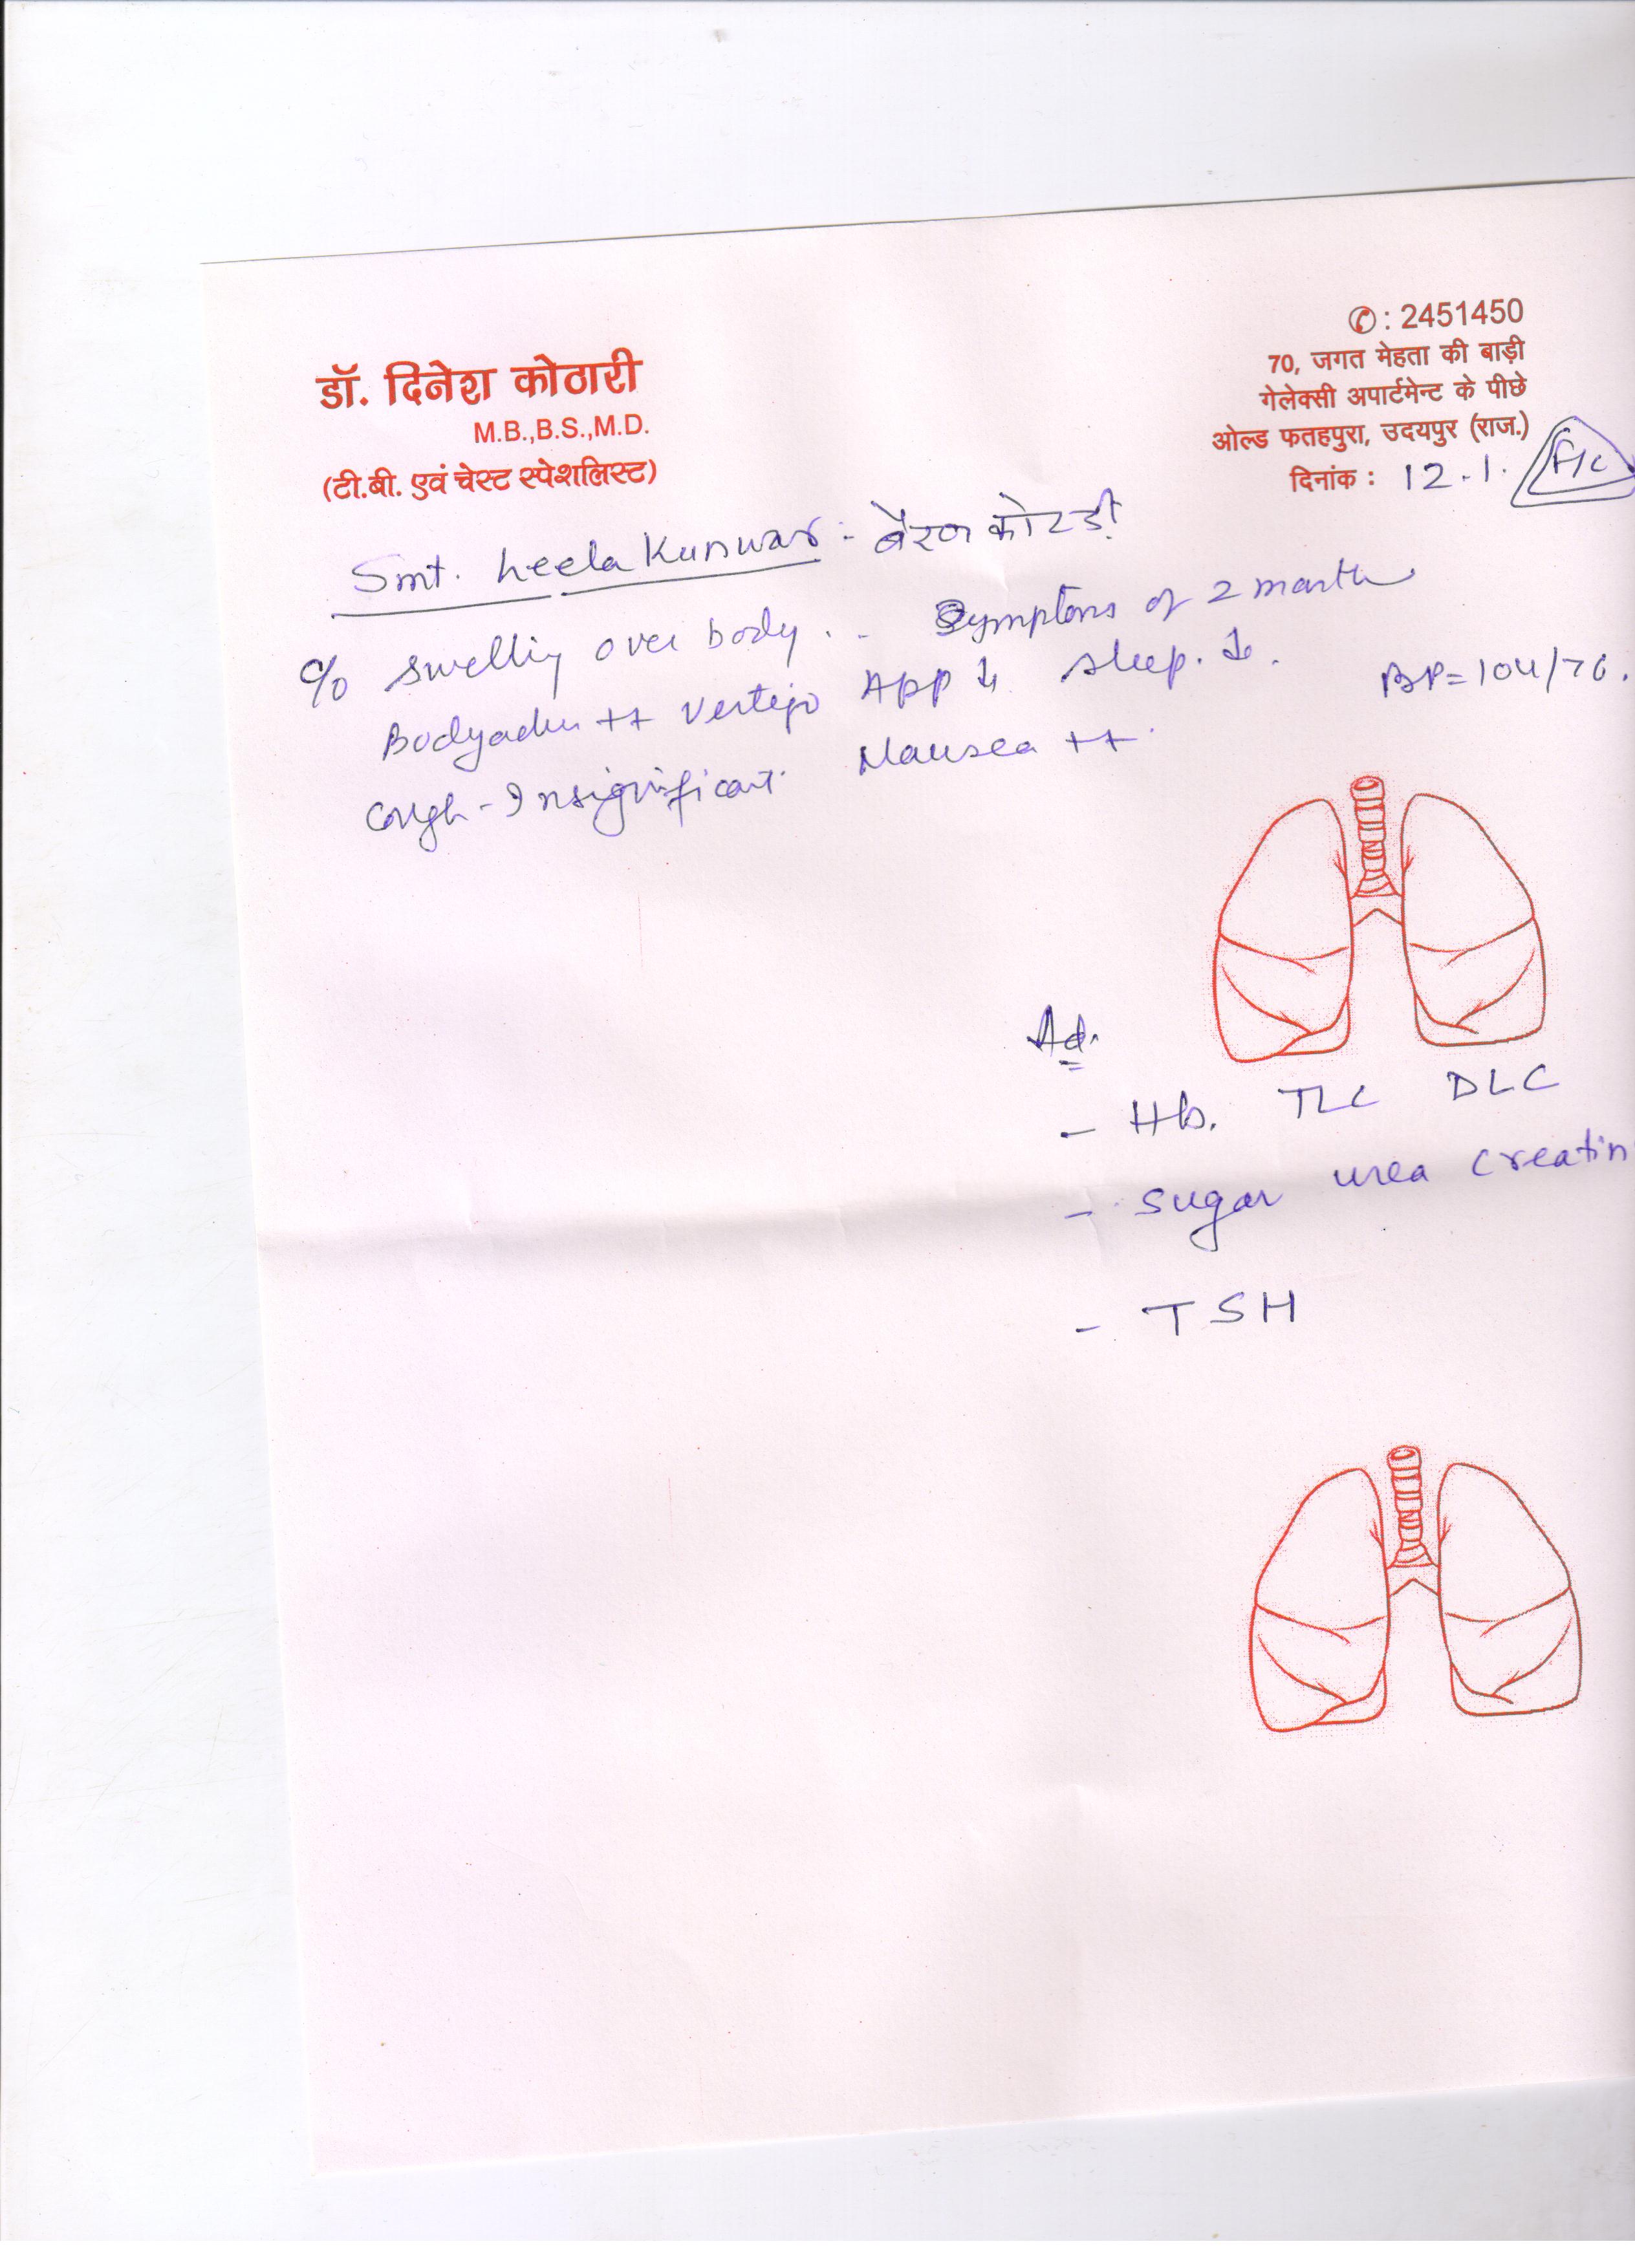 ✆ : 2451450
70, जगत मेहता की बाड़ी
गेलेक्सी अपार्टमेन्ट के पीछे
ओल्ड फतहपुरा, उदयपुर (राज.)
दिनांक : 12.1. F/C
डॉ. दिनेश कोठारी
M.B.,B.S.,M.D.
(टी.बी. एवं चेस्ट स्पेशलिस्ट)
Smt. Leela Kunwar :-
c/o swelling over body . - Symptoms of 2 month
Bodyache ++ Vertigo App ↓ sleep. ↓. BP=104/76.
Cough - Insignificant. Nausea ++.
Ad.
- Hb. TLC DLC
- sugar urea creatin
- TSH